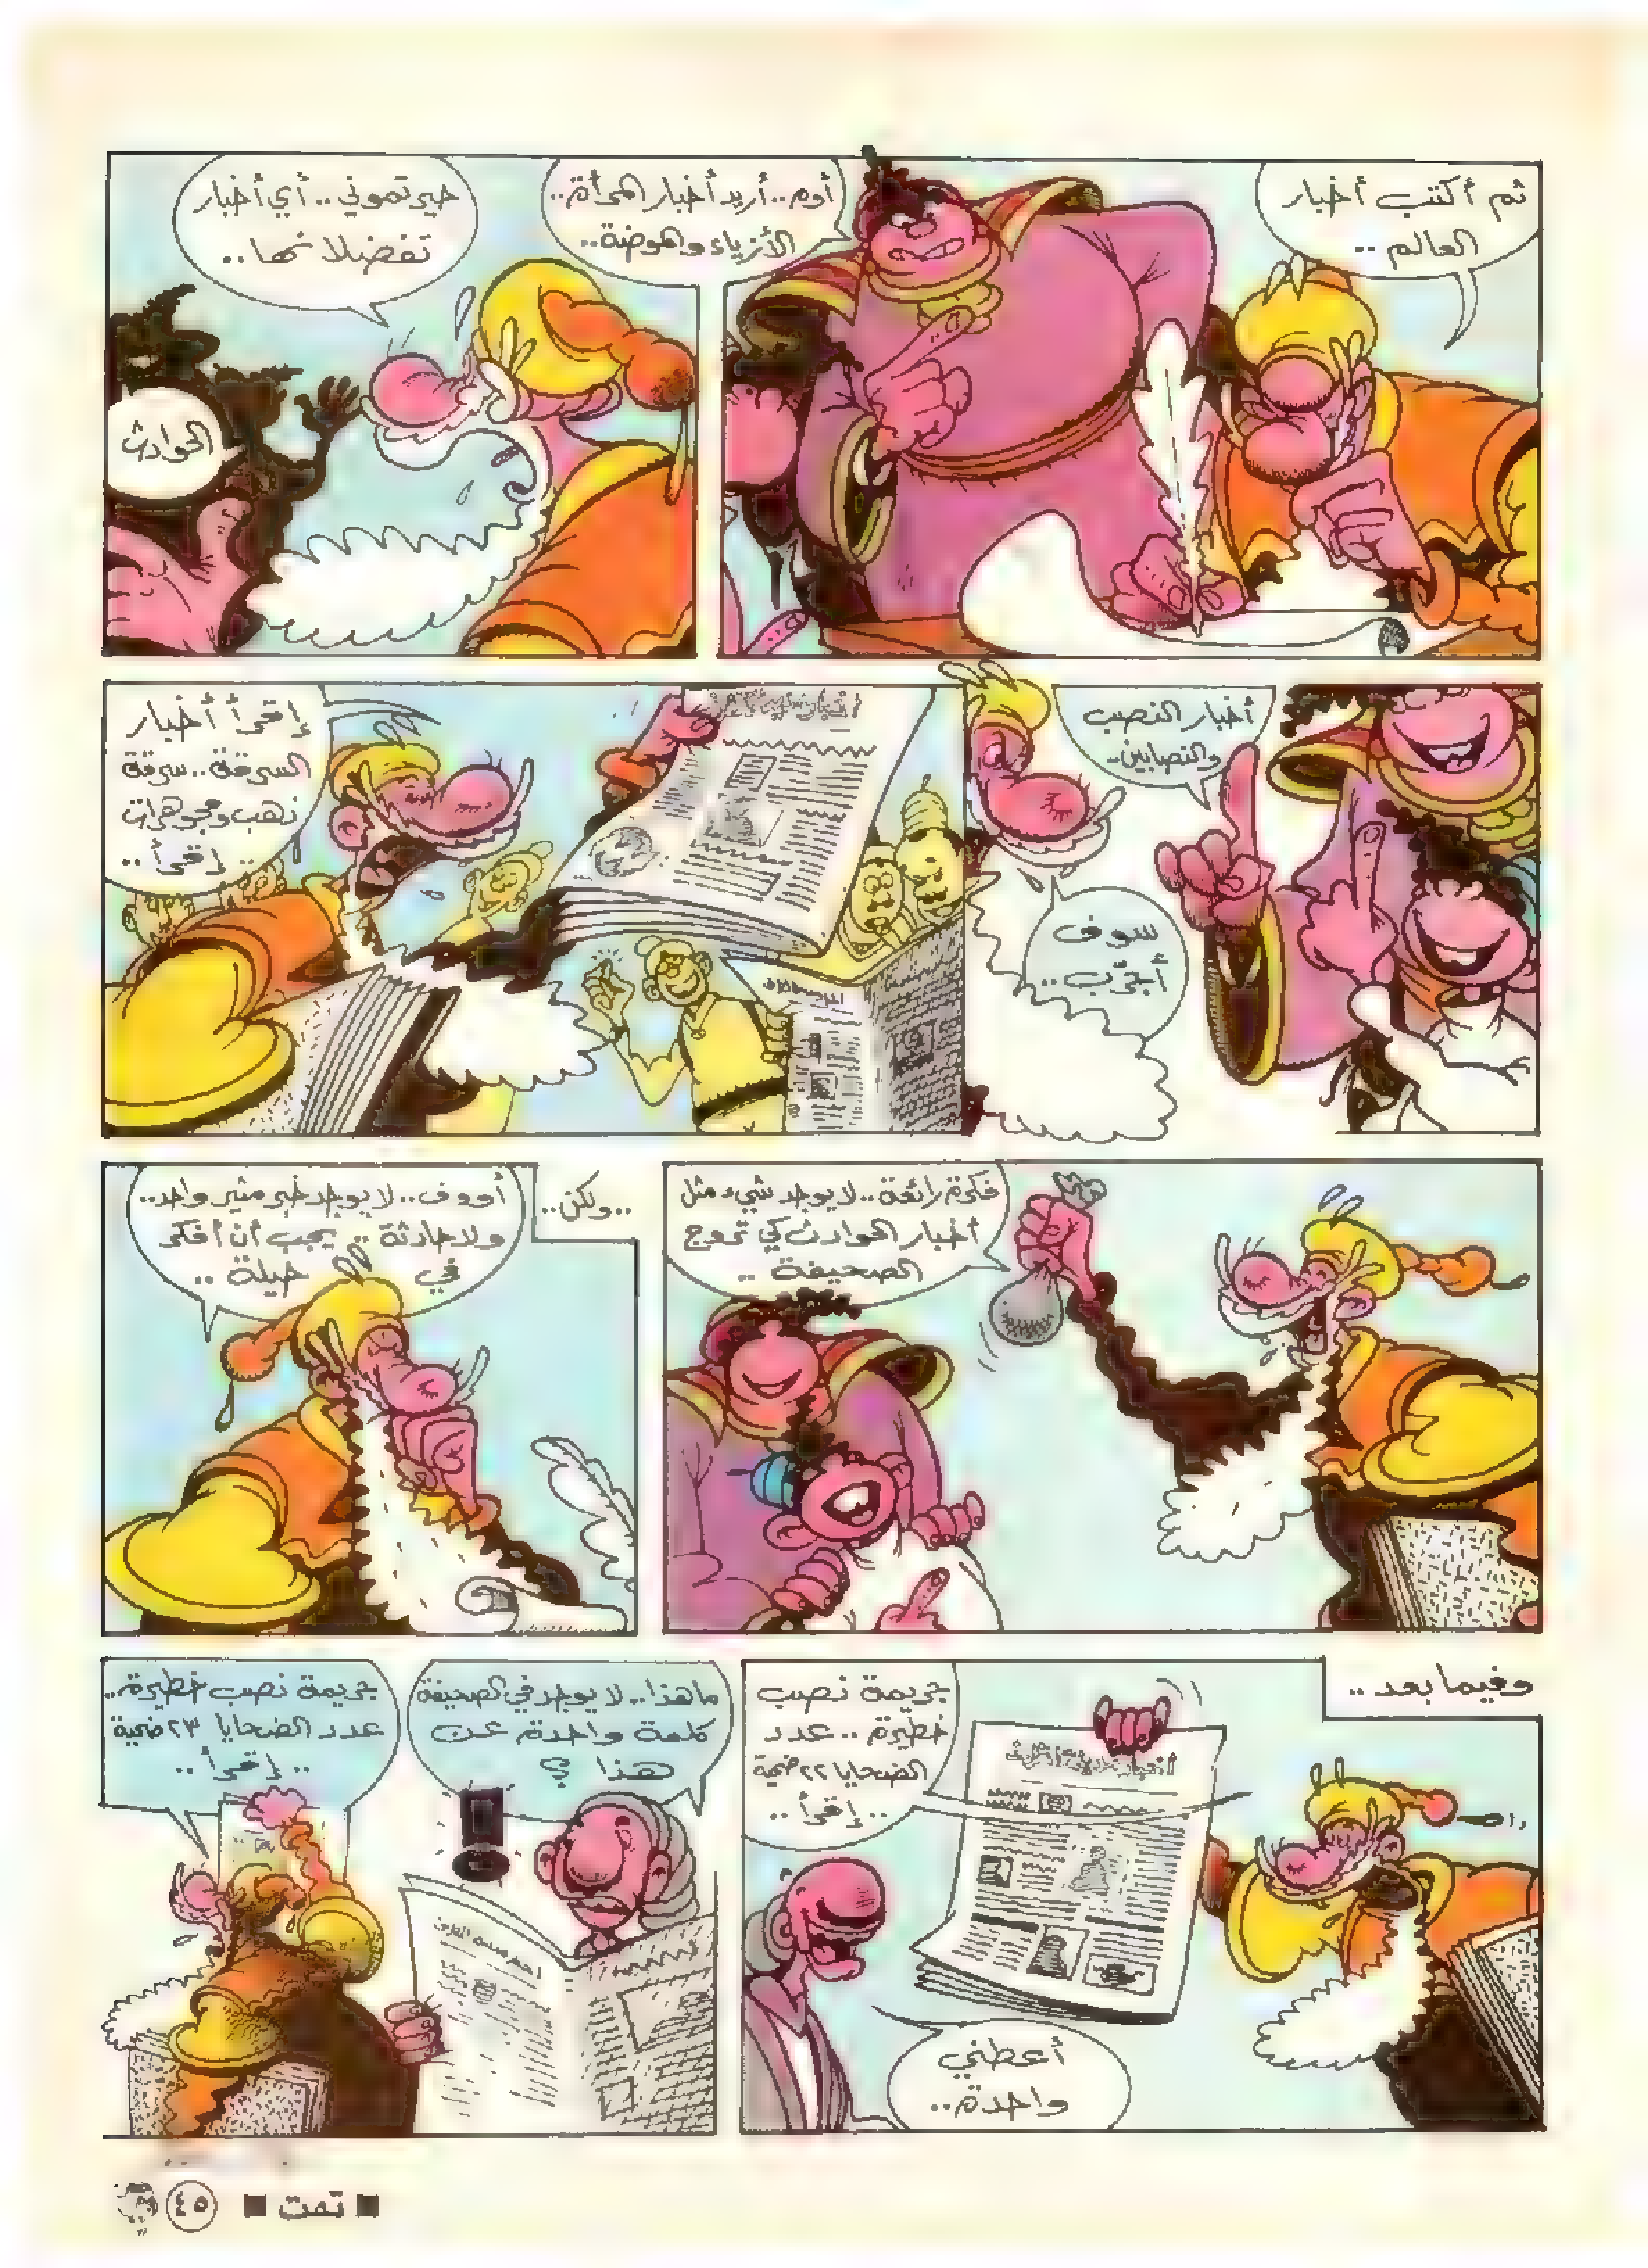 ثم أكتب أخبار
العالم ..
أوه.. أريد أخبار المرأة..
الأزياء والموضة..
حيرتموني.. أي أخبار
تفضلانها..
الحوادث
أخبار النصب
والنصابين..
سوف
أجرّب..
إقرأ أخبار
السرقة.. سرقة
ذهب ومجوهرات
.. إقرأ ..
فكرة رائعة.. لا يوجد شيء مثل
أخبار الحوادث كي تروج
الصحيفة ..
..ولكن..
أووف.. لا يوجد خبر مثير واحد..
ولا حادثة .. يجب أن أفكر
في حيلة ..
وفيما بعد ..
جريمة نصب
خطيرة .. عدد
الضحايا ٢٢ ضحية
.. إقرأ ..
أعطني
واحدة..
ما هذا.. لا يوجد في الصحيفة
كلمة واحدة عن
هذا ؟
جريمة نصب خطيرة..
عدد الضحايا ٢٣ ضحية
.. إقرأ ..
■ تمت ■
٤٥